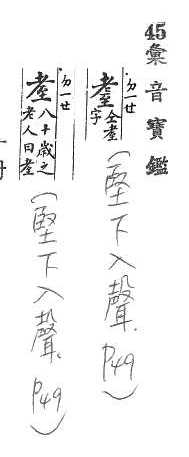 45 彙音寶鑑
ㄉㄧㄝ
耊 仝耋字
(堅下入聲. P49)
ㄉㄧㄝ
耋 八十歲之老人曰耋
(堅下入聲. P49)